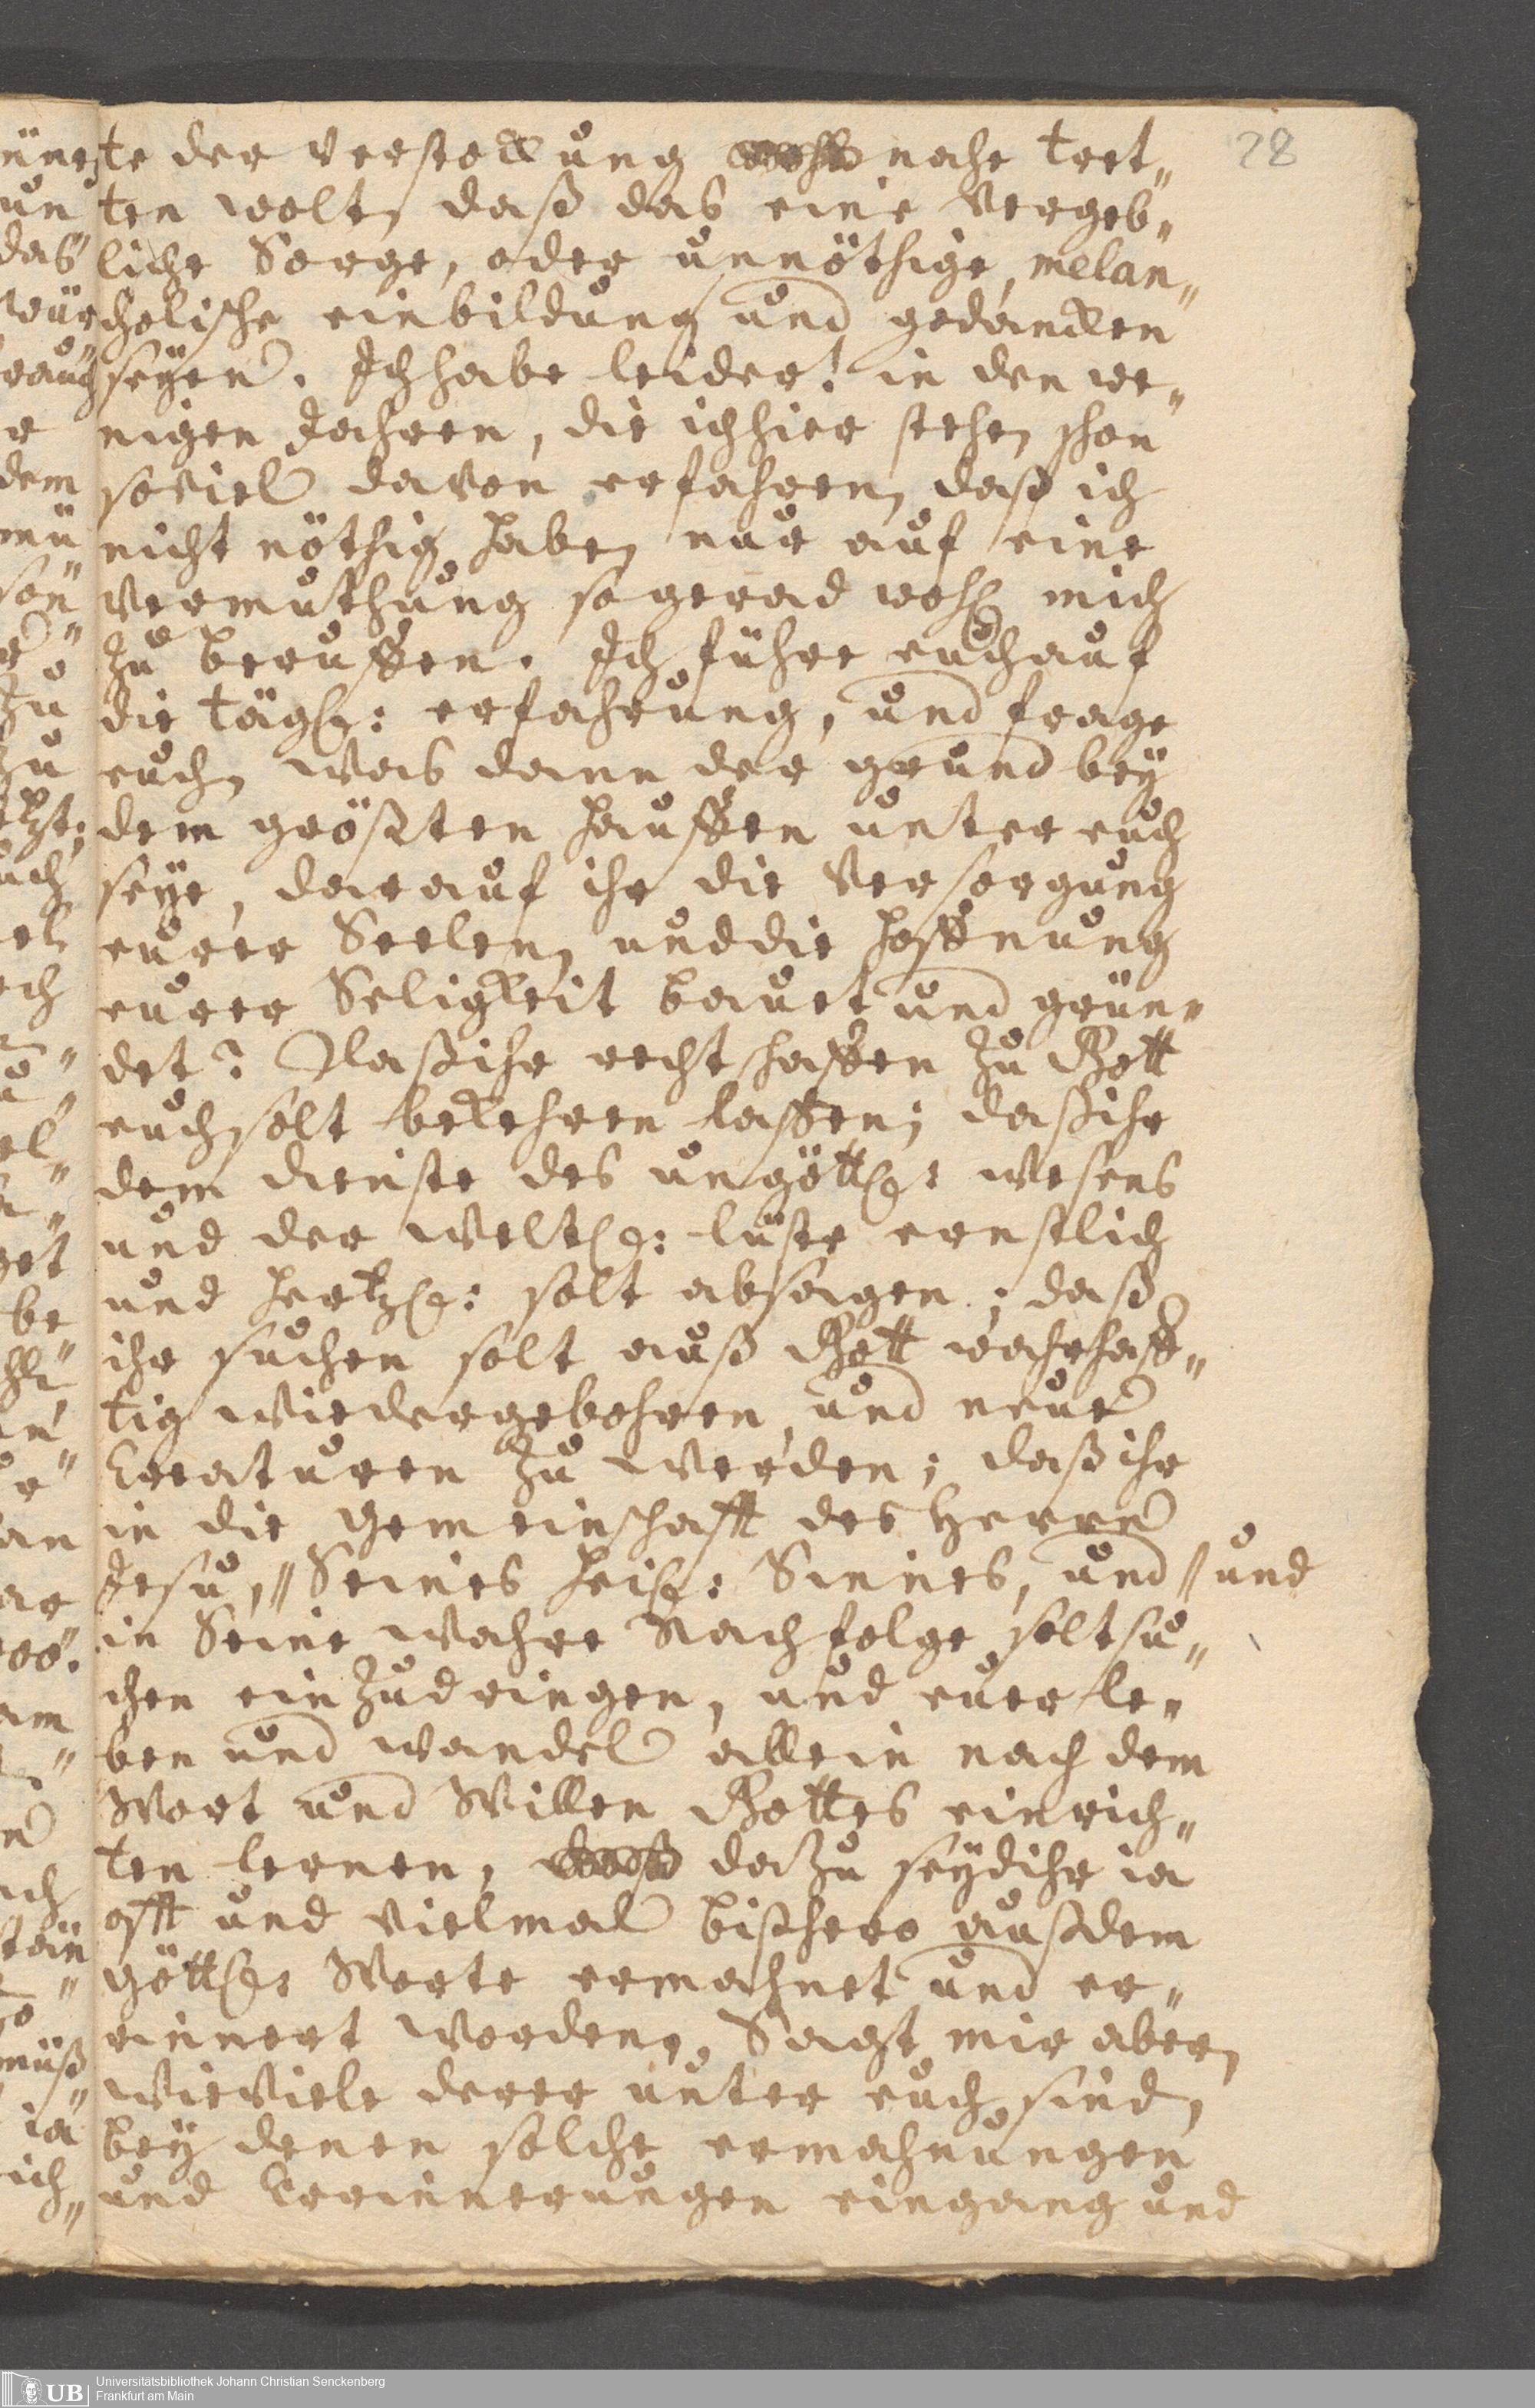 28
te der verstockung nahe tret„
ten wolt, daß das eine vergeb„
liche Sorge, oder unnöthige, melan„
cholische einbildung und gedancken
seyen. Ich habe leider! in den we„
nigen Jahren, die ich hier stehe, schon
soviel davon erfahren, daß ich
nicht nöthig habe, nur auf eine
vermuthung so gerad wohl mich
zu beruffen. Ich führe euch auf
die tägl: erfahrung, und frage
euch, was dann der grund bey
dem größten hauffen unter euch
seye, darauf ihr die versorgung
eurer Seelen, und die hoffnung
eurer Seligkeit bauet und grün„
det? Daß ihr rechtschaffen zu Gott
euch solt bekehren lassen; daß ihr
dem dienste des ungöttl: wesens
und der weltl: lüste ernstlich
und hertzl: solt absagen; daß
ihr suchen solt auß Gott wahrhaff„
tig wiedergebohren, und neue
Creaturen zu werden; daß ihr
in die gemeinschafft des Herrn
Jesu, // Seines heil: Sinnes, und // und
in Seine wahre Nachfolge solt su„
chen einzudringen, und euer le„
ben und wandel allein nach dem
Wort und Willen Gottes einrich„
ten lernen, dazu seyd ihr ia
offt und vielmal bißhero auß dem
göttl: Worte ermahnet und er„
innert worden. Sagt mir aber,
wieviele derer unter euch sind,
bey denen solche ermahnungen
und Erinnerungen eingang und
UB
Universitätsbibliothek Johann Christian Senckenberg
Frankfurt am Main